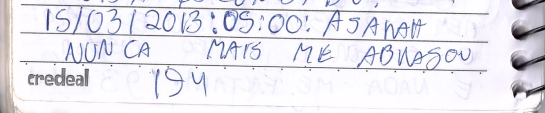 15/03/2013:05:00: ASAHAH
NUNCA MAIS ME ABRASOU
credeal 194